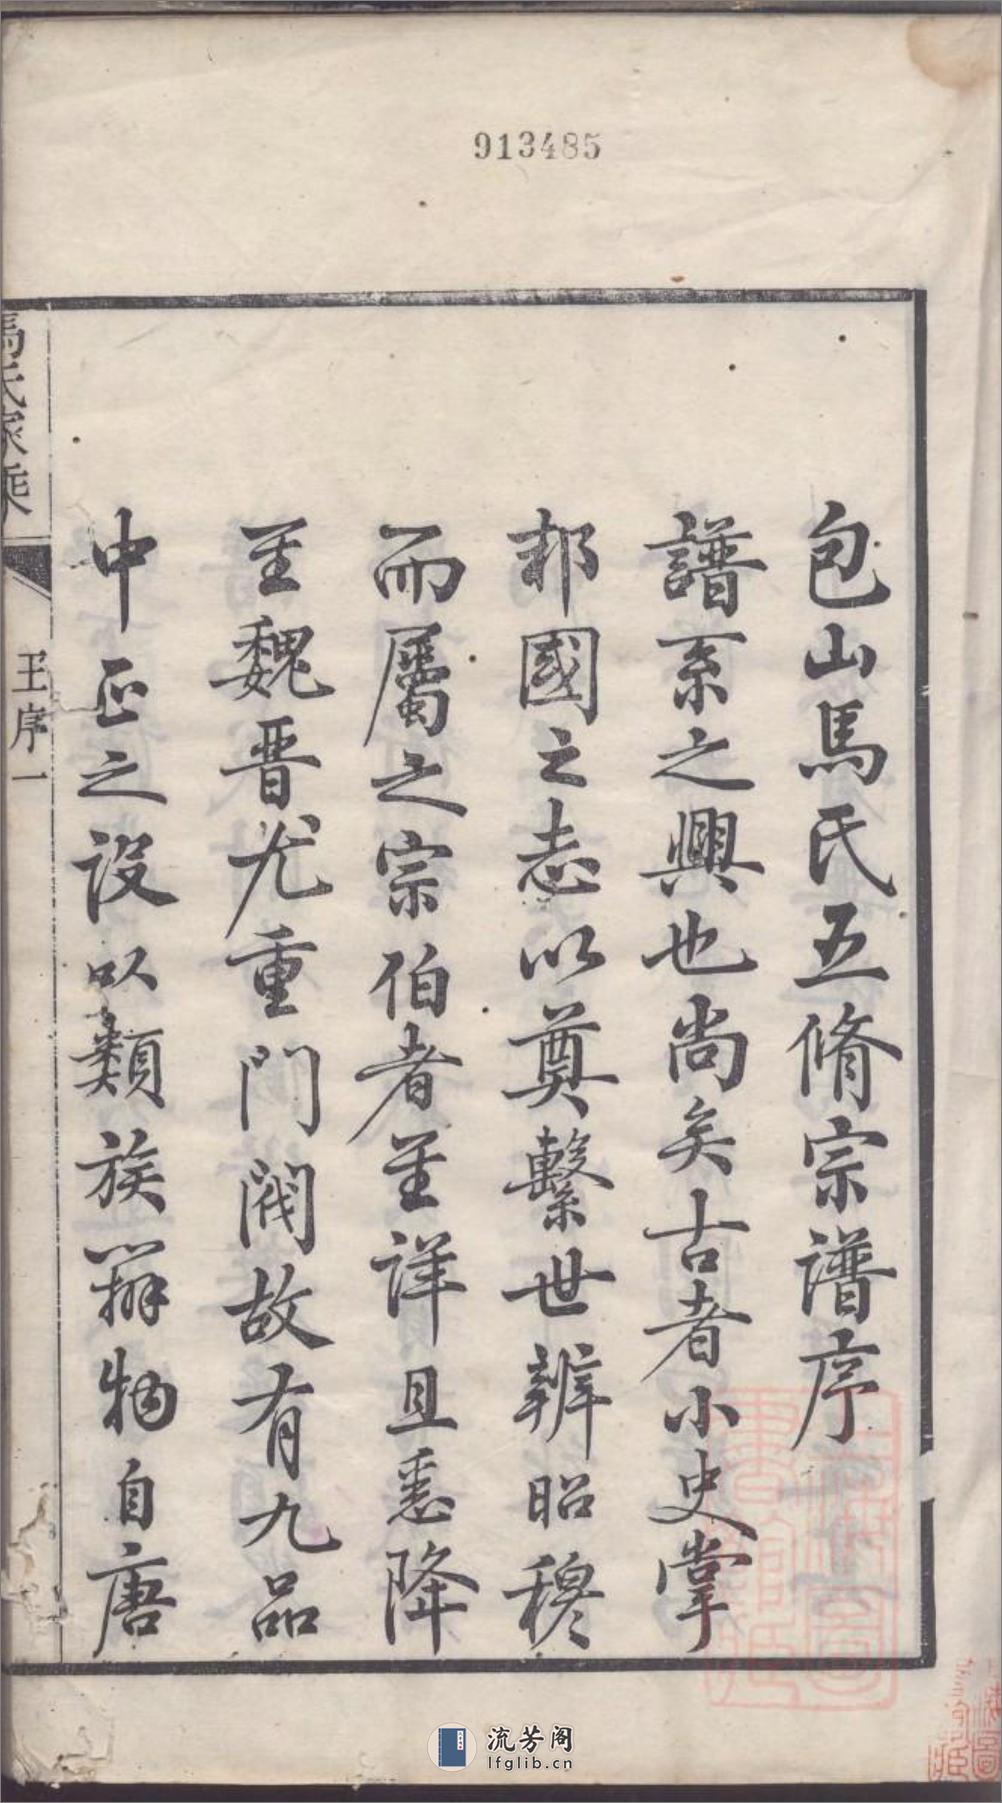 913485
包山馬氏五脩宗譜序
譜系之興也尚矣古者小史掌
邦國之志以奠繫世辨昭穆
而屬之宗伯者至詳且悉降
至魏晋尤重門閥故有九品
中正之設以類族辨物自唐
馬氏家乘
王序一
流芳阁
lfglib.cn